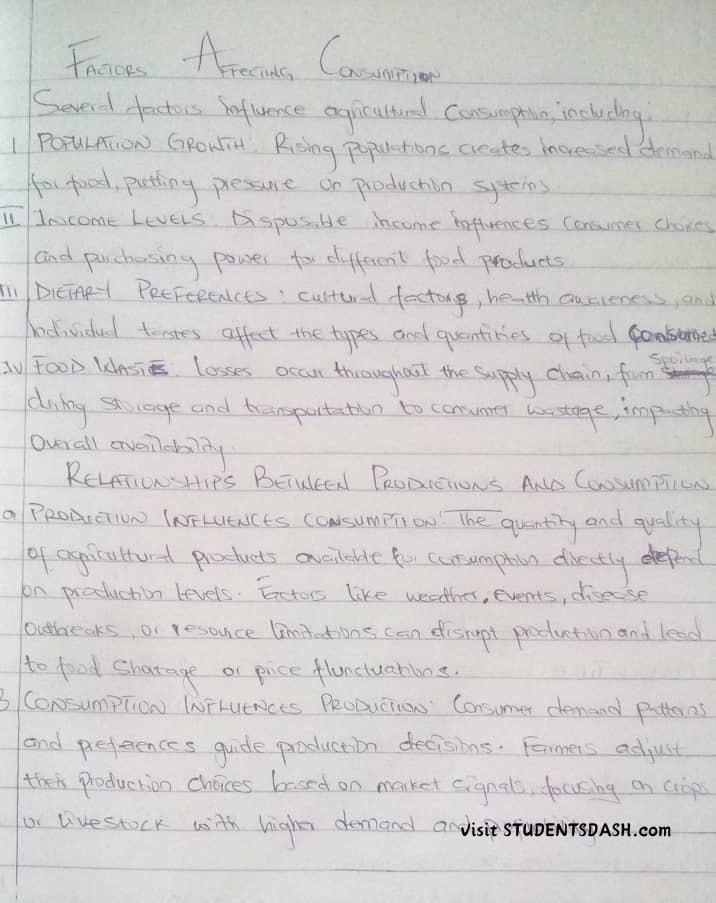 FACTORS AFFECTING CONSUMPTION
Several factors influence agricultural consumption, including:
I POPULATION GROWTH: Rising populations creates increased demand
for food, putting pressure on production systems
II INCOME LEVELS: Disposable income influences consumer choices
and purchasing power for different food products
III DIETARY PREFERENCES: cultural factors, health awareness, and
individual tastes affect the types and quantities of food consumed
IV FOOD WASTE: losses occur throughout the supply chain, from spoilage
during storage and transportation to consumer wastage, impacting
Overall availability.
RELATIONSHIPS BETWEEN PRODUCTIONS AND CONSUMPTION
a PRODUCTION INFLUENCES CONSUMPTION: The quantity and quality
of agricultural products available for consumption directly depend
on production levels. Factors like weather, events, disease
outbreaks, or resource limitations can disrupt production and lead
to food Shatage or price flunctuations.
B CONSUMPTION INFLUENCES PRODUCTION: Consumer demand patterns
and preferences guide production decisions. Farmers adjust
their production choices based on market signals, focusing on crops
or livestock with higher demand and
Visit STUDENTSDASH.com